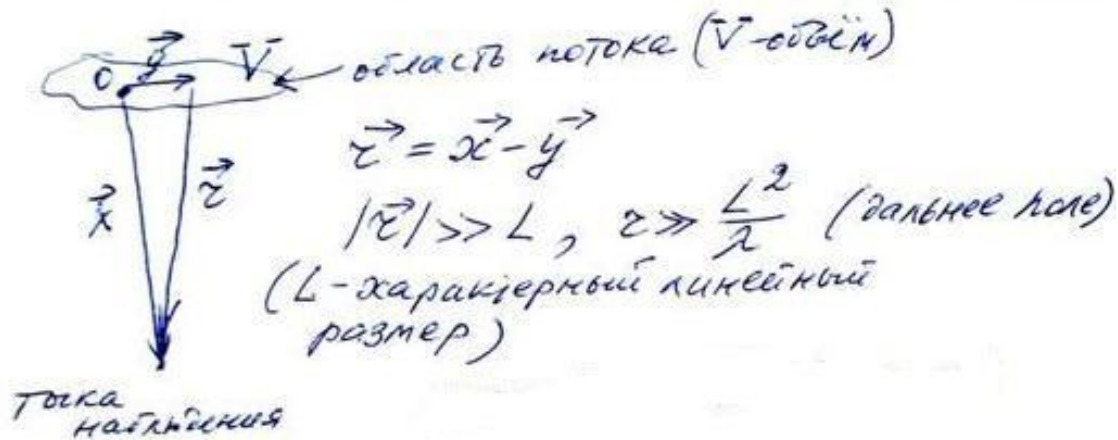 O \vec{y} V̄ область потока (V̄-объём)
\vec{x} \vec{r} \vec{r} = \vec{x} - \vec{y}
|\vec{r}| >> L, r >> L²/λ (дальнее поле)
(L - характерный линейный
размер)
точка
наблюдения